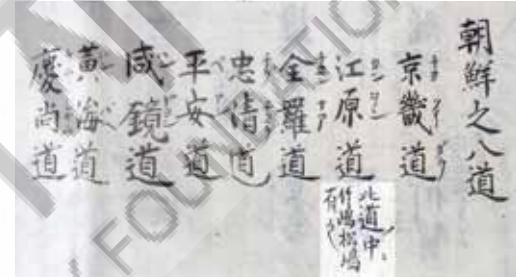 朝鮮之八道
京畿道
江原道
此道中
竹嶋松嶋
有之
全羅道
忠清道
平安道
咸鏡道
黄海道
慶尚道
FOUNDATION